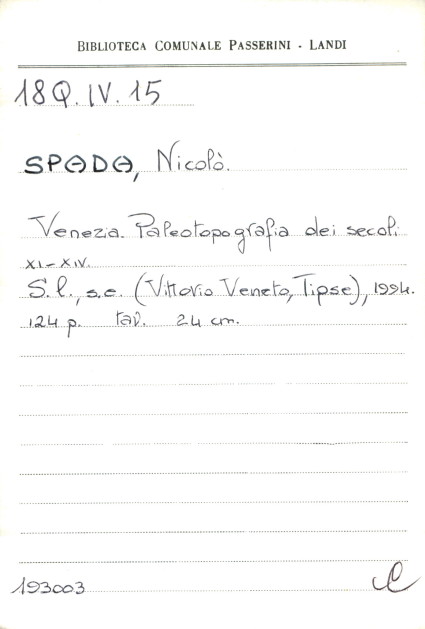 BIBLIOTECA COMUNALE PASSERINI - LANDI
18Q.IV.15
SPADA, Nicolò.
Venezia. Paleotopografia dei secoli
XI-XIV.
S.l., s.e. (Vittorio Veneto, Tipse), 1994.
124 p. tav. 24 cm.
193003